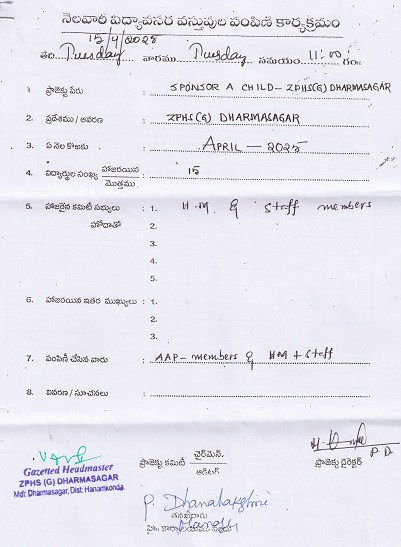 నెలవారీ విద్యావసర వస్తువుల పంపిణీ కార్యక్రమం
15/4/2025
తేది: Tuesday వారము Tuesday సమయం 11:00 గం॥
1. ప్రాజెక్టు పేరు : SPONSOR A CHILD - ZPHS(G) DHARMASAGAR
2. ప్రదేశము / ఆవరణ : ZPHS(G) DHARMASAGAR
3. ఏ నెల కొరకు : APRIL - 2025
4. విద్యార్థుల సంఖ్య హాజరయిన / మొత్తము : 15
5. హాజరైన కమిటీ సభ్యులు : 1. H.M. & Staff members
హోదాతో 2.
3.
4.
5.
6. హాజరయిన ఇతర ముఖ్యులు : 1.
2.
3.
7. పంపిణీ చేసిన వారు : AAP- members & HM + Staff
8. వివరణ / సూచనలు :
Gazetted Headmaster
ZPHS (G) DHARMASAGAR
Mdl: Dharmasagar, Dist: Hanamkonda.
ప్రాజెక్టు కమిటీ చైర్‌మెన్. / ఆడిటర్
ప్రాజెక్టు డైరెక్టర్
P.D.